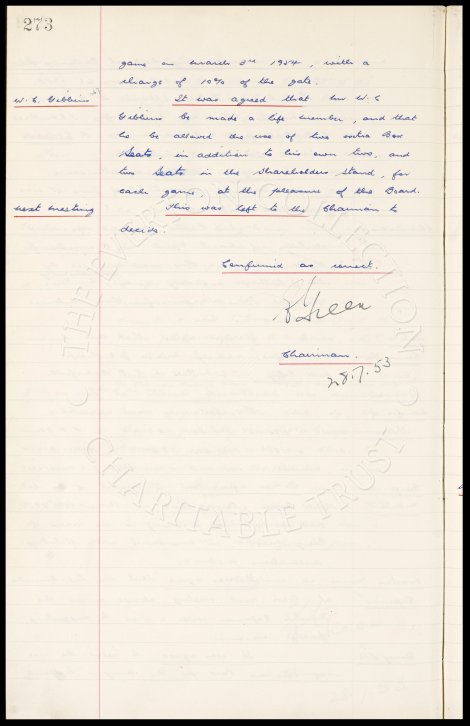 273
game on March 3rd 1954, with a
charge of 10% of the gate.
W. C. Gibbins
It was agreed that Mr W. C
Gibbins be made a life member, and that
he be allowed the use of two extra Box
Seats, in addition to his own two, and
two Seats in the Shareholders Stand, for
each game, at the pleasure of the Board.
next meeting
This was left to the Chairman to
decide.
Confirmed as correct.
Green
Chairman.
28.7.53
THE EVERTON COLLECTION
CHARITABLE TRUST